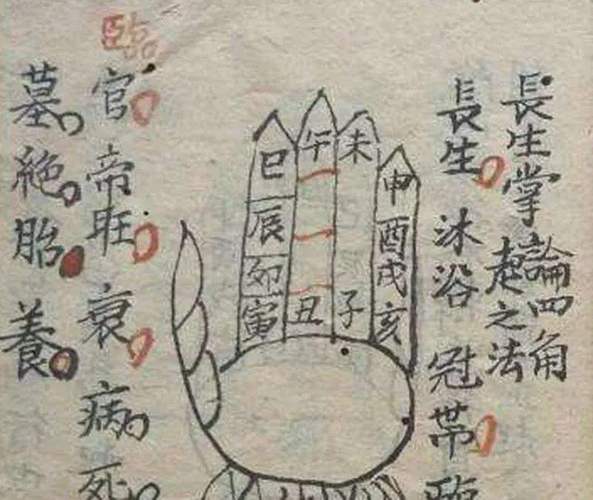 長生掌
論四角
之法
長生 沐浴 冠帶 臨
申酉戌亥
未 子
午 丑
巳辰卯寅
臨
官 帝旺 衰 病 死
墓 絶 胎 養